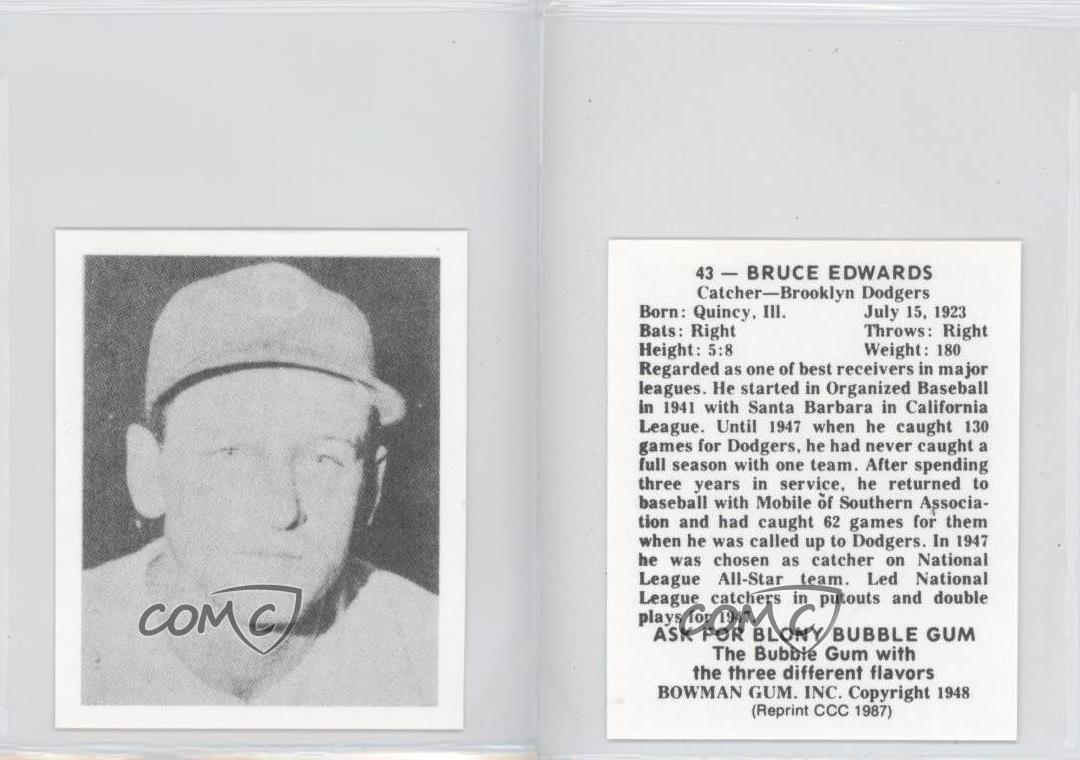 B
COMC
43 — BRUCE EDWARDS
Catcher—Brooklyn Dodgers
Born: Quincy, Ill. July 15, 1923
Bats: Right Throws: Right
Height: 5:8 Weight: 180
Regarded as one of best receivers in major
leagues. He started in Organized Baseball
in 1941 with Santa Barbara in California
League. Until 1947 when he caught 130
games for Dodgers, he had never caught a
full season with one team. After spending
three years in service, he returned to
baseball with Mobile of Southern Associa-
tion and had caught 62 games for them
when he was called up to Dodgers. In 1947
he was chosen as catcher on National
League All-Star team. Led National
League catchers in putouts and double
plays for 1947.
COMC
ASK FOR BLONY BUBBLE GUM
The Bubble Gum with
the three different flavors
BOWMAN GUM. INC. Copyright 1948
(Reprint CCC 1987)